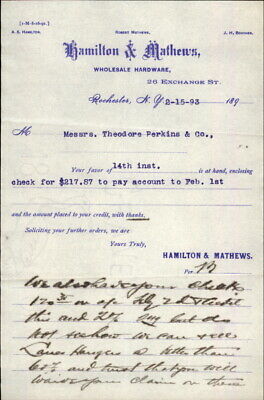 A. E. HAMILTON. ROBERT MATHEWS. J. H. BOUCHER.
Hamilton & Mathews,
WHOLESALE HARDWARE,
26 EXCHANGE ST.
Rochester, N. Y. 2-15-93 189
M Messrs. Theodore Perkins & Co.,
Your favor of 14th inst. is at hand, enclosing
check for $217.87 to pay account to Feb. 1st
and the amount placed to your credit, with thanks.
Soliciting your further orders, we are
Yours Truly,
HAMILTON & MATHEWS.
Per
We also have your check
this and 2% but do
not see how we can sell
Lanes Hangers a little than
60% and trust that you will
waive your claim on these